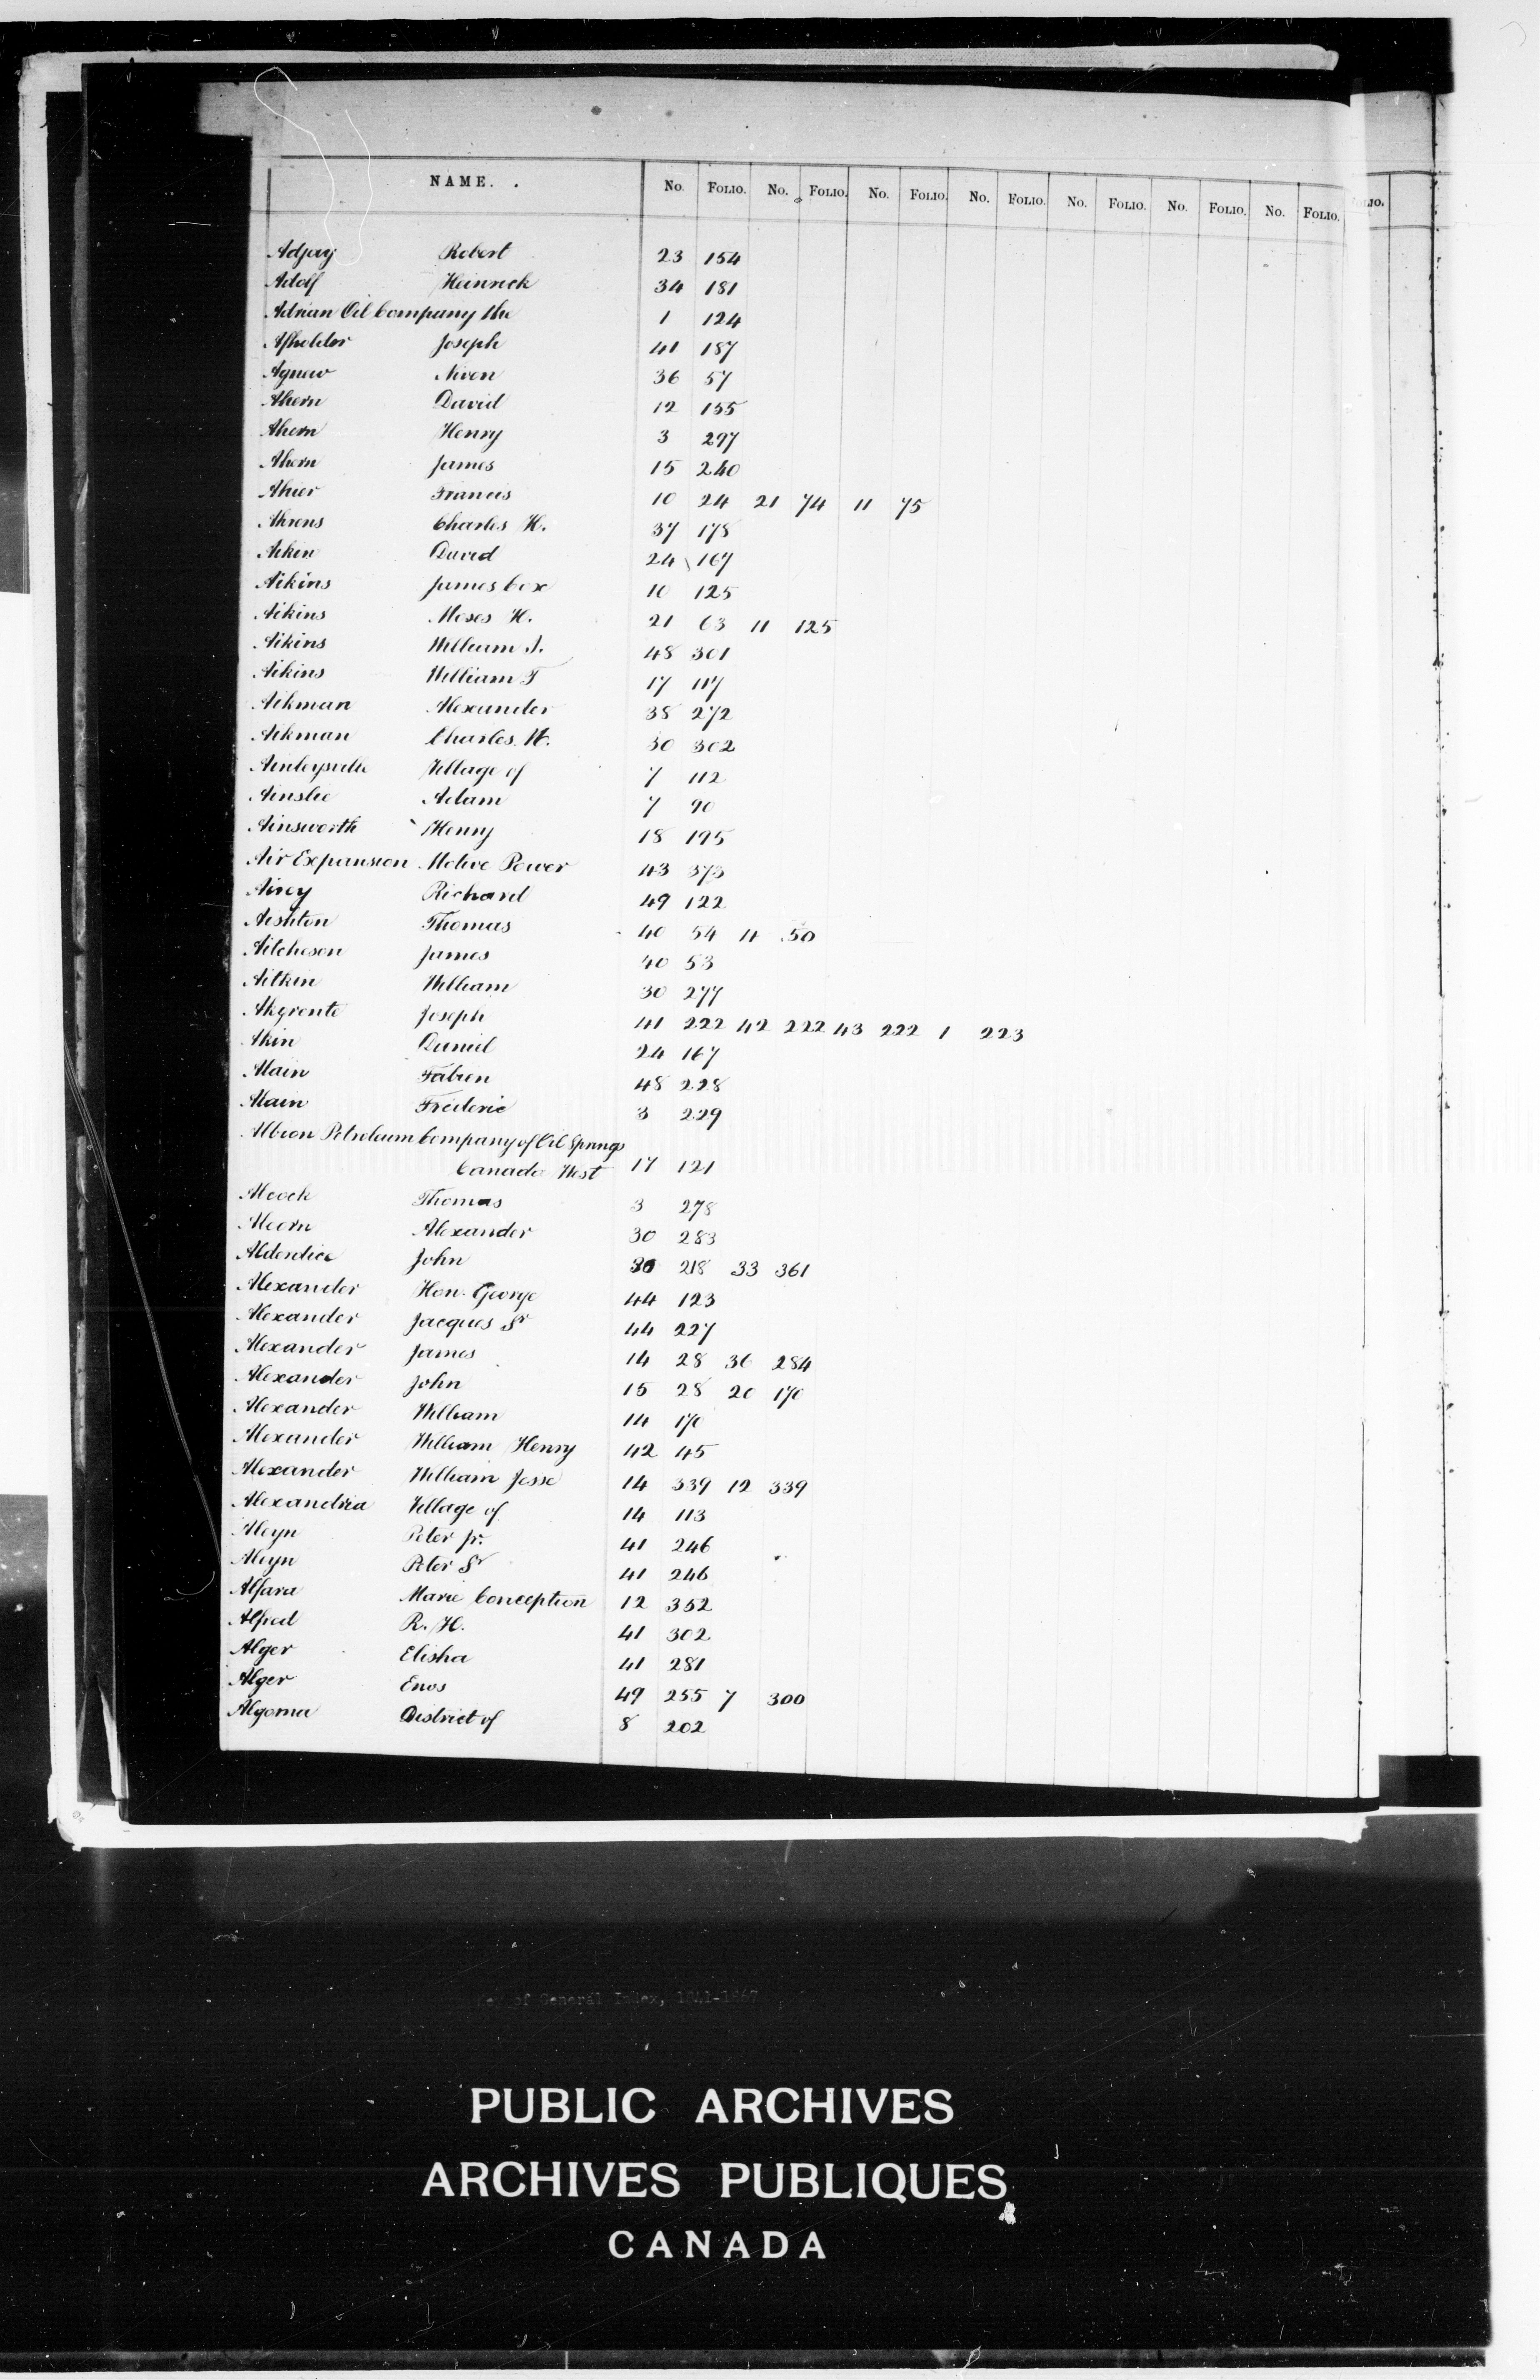 NAME. No. FOLIO. No. FOLIO. No. FOLIO. No. FOLIO. No. FOLIO. No. FOLIO. No. FOLIO.
Robert 23 154
Adolf Heinrich 34 181
Adrian Oil Company the 1 124
Afholder Joseph 41 187
Agnew Niven 36 57
Ahern David 12 155
Ahern Henry 3 297
Ahern James 15 240
Ahier Francis 10 24 21 74 11 75
Ahrens Charles H. 37 178
Aikin David 24 167
Aikins James Cox 10 125
Aikins Moses H. 21 63 11 125
Aikins William J. 48 301
Aikins William T 17 117
Aikman Alexander 38 272
Aikman Charles H. 30 302
Ainleyville Village of 7 112
Ainslie Adam 7 90
Ainsworth Henry 18 195
Air Expansion Motive Power 43 373
Airey Richard 49 122
Aishton Thomas 40 54 11 50
Aitcheson James 40 53
Aitkin William 30 277
Joseph 41 222 42 222 43 222 1 223
Akin Daniel 24 167
Alain Fabien 48 228
Alain Frederic 3 229
Albion Petroleum Company of Oil Springs
Canada West 17 121
Alcock Thomas 3 278
Alcorn Alexander 30 283
Alderdice John 30 218 33 361
Alexander Hon. George 44 123
Alexander Jacques Sr 44 227
Alexander James 14 28 36 284
Alexander John 15 28 20 170
Alexander William 14 170
Alexander William Henry 42 45
Alexander William Jesse 14 339 12 339
Alexandria Village of 14 113
Aleyn Peter Jr. 41 246
Aleyn Peter Sr 41 246
Alfara Marie Conception 12 352
Alfred R. H. 41 302
Alger Elisha 41 281
Alger Enos 49 255 7 300
Algoma District of 8 202
Key of General Index, 1841-1867
PUBLIC ARCHIVES
ARCHIVES PUBLIQUES
CANADA